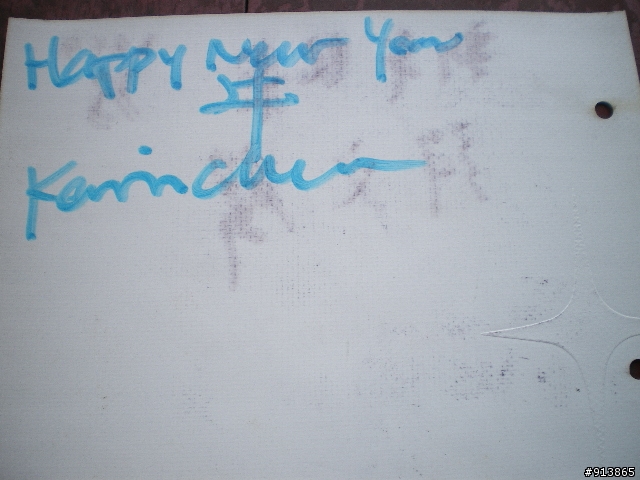 Happy New Year
年
Kevin chen
#913865